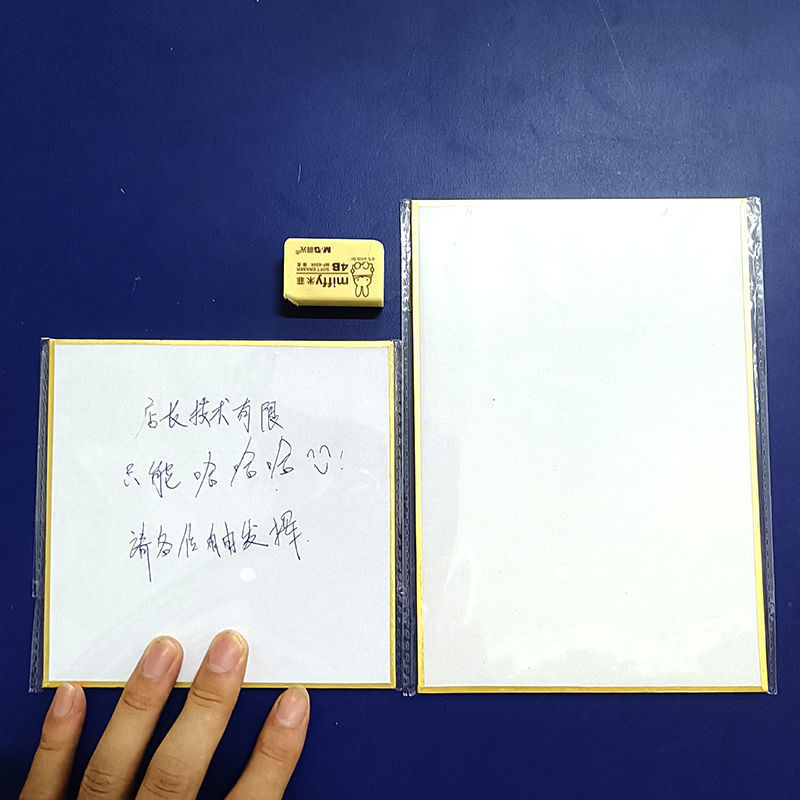 M&G晨光®
4B
SOFT ERASER
miffy米菲
店长技术有限
只能哈哈哈!
请各位自由发挥.